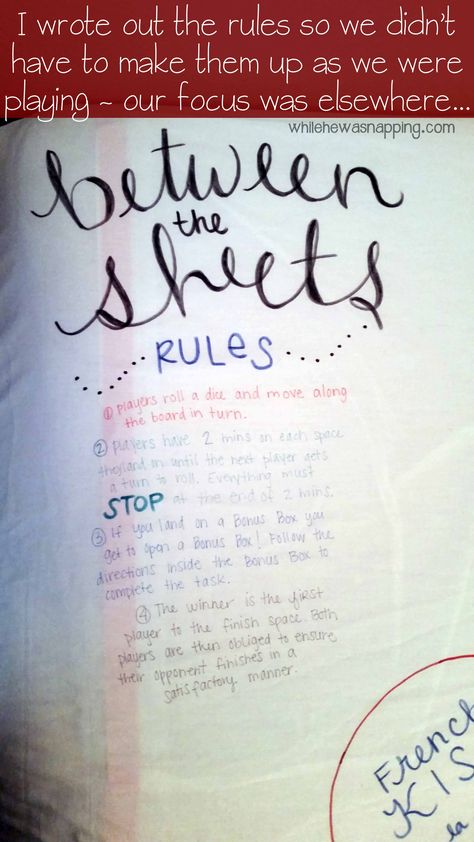 I wrote out the rules so we didn't
have to make them up as we were
playing ~ our focus was elsewhere...
whilehewasnapping.com
between
the
sheets
RULES
① players roll a dice and move along
the board in turn.
② Players have 2 mins on each space
they land on until the next player gets
a turn to roll. Everything must
STOP at the end of 2 mins.
③ If you land on a Bonus Box you
get to open a Bonus Box! Follow the
directions inside the Bonus Box to
complete the task.
④ The winner is the first
player to the finish space. Both
players are then obliged to ensure
their opponent finishes in a
satisfactory manner.
French
KIS